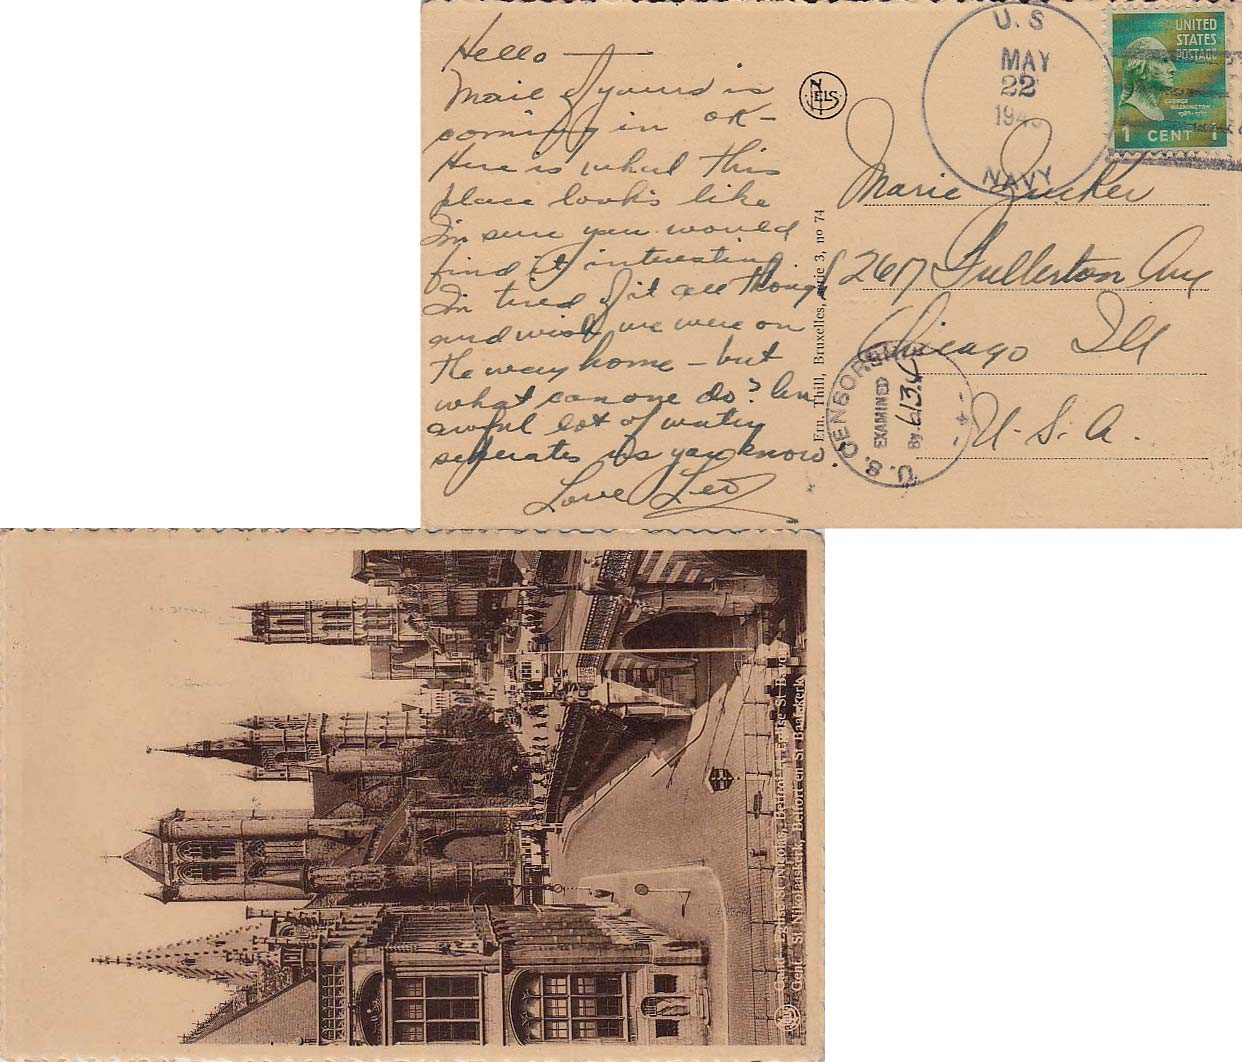 Hello —
Mail of yours is
coming in OK -
Here is what this
place looks like
I'm sure you would
find it interesting.
I'm tired of it all though
and wish we were on
the way home - but
what can one do? An
awful lot of water
seperates us you know.
Love Leo
NELS
Ern. Thill, Bruxelles, Série 3, no 74
U.S
MAY
22
NAVY
UNITED
STATES
POSTAGE
GEORGE
WASHINGTON
1 CENT 1
Marie Zucker
2617 Fullerton Ave
Chicago Ill
U.S.A.
U.S. CENSORSHIP
EXAMINED
By 613
Gand Eglise St Nicolas, Beffroi et Eglise St Bavon
Gent St Niklaaskerk, Belfort en St Baafskerk
NELS